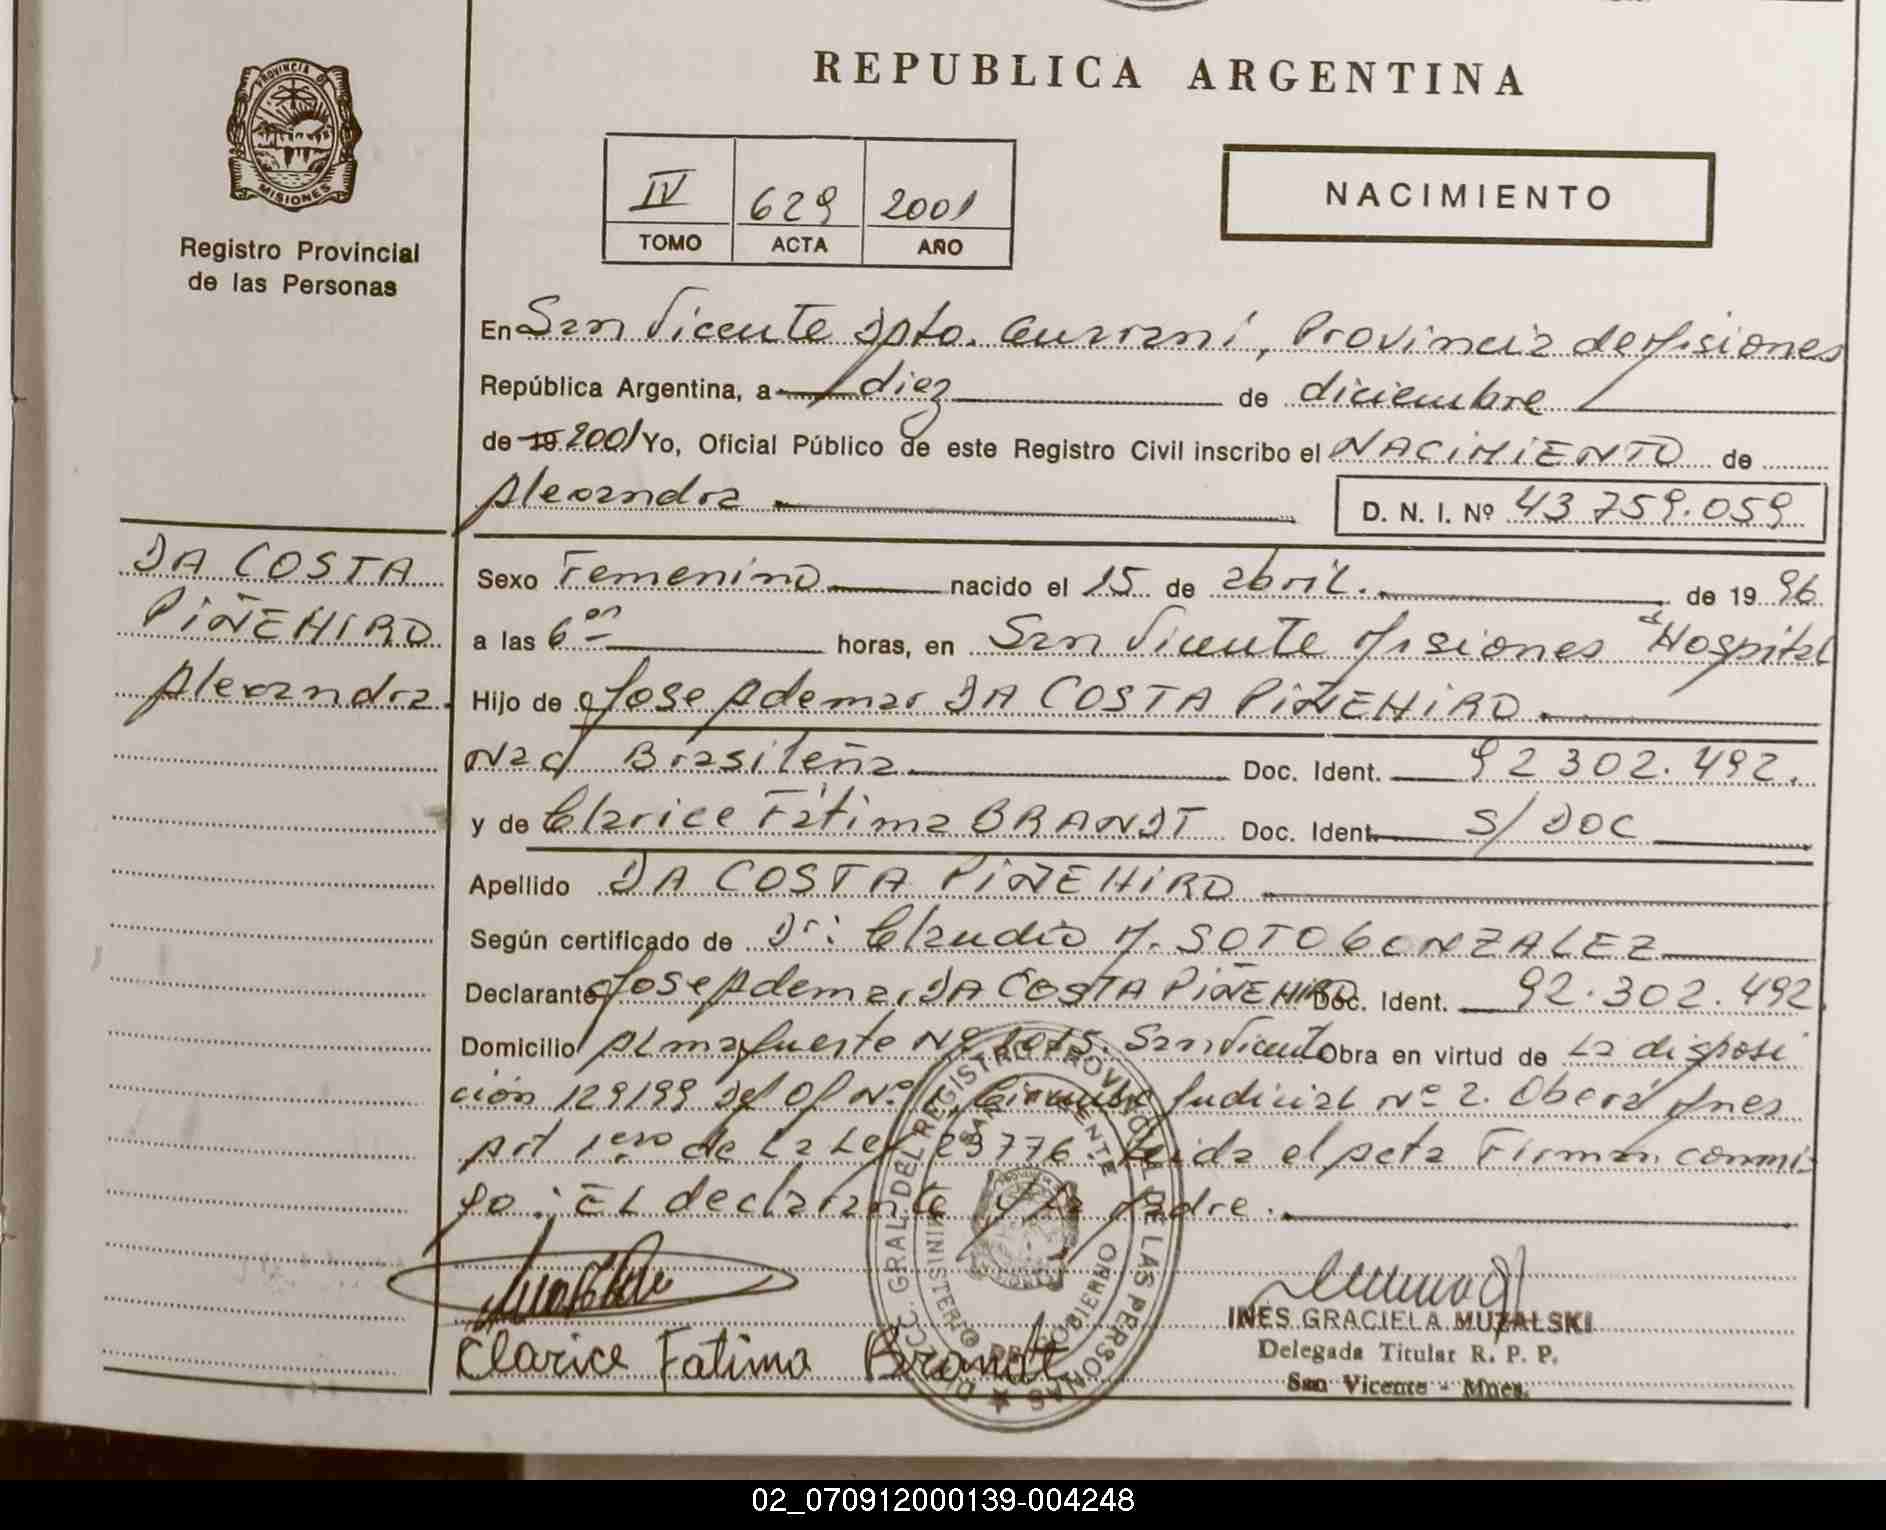 REPUBLICA ARGENTINA
PROVINCIA DE
MISIONES
Registro Provincial
de las Personas
IV 629 2001
TOMO ACTA AÑO
NACIMIENTO
En San Vicente Dpto. Guaraní, Provincia de Misiones
República Argentina, a diez de diciembre
de 19 2001 Yo, Oficial Público de este Registro Civil inscribo el NACIMIENTO de
Alexandra
D. N. I. Nº 43 759.059
DA COSTA
PIÑEHIRO
Alexandra.
Sexo Femenino nacido el 15 de abril. de 19 96
a las 6 horas, en San Vicente Misiones Hospital
Hijo de Jose Ademar DA COSTA PIÑEHIRO
Nac Brasileña Doc. Ident. 92 302.492.
y de Clarice Fátima BRANDT Doc. Ident. S/DOC
Apellido DA COSTA PIÑEHIRO
Según certificado de Dr: Claudio M. SOTO GONZALEZ
Declarante Jose Ademar DA COSTA PIÑEHIRO Doc. Ident. 92.302.492
Domicilio Almafuerte Nº 1015. San Vicente Obra en virtud de La disposi
ción 129199 Del Of Nº 1 Judicial Nº 2. Oberá Mnes
Art 1ero de La Ley 23776. Leida el Acta Firman conmi
go: EL declarante y La Madre.
DIRECC. GRAL. DEL REGISTRO PROVINCIAL DE LAS PERSONAS
SAN VICENTE
MINISTERIO DE GOBIERNO
Clarice Fatima Brandt
INES GRACIELA MUZALSKI
Delegada Titular R. P. P.
San Vicente - Mnes.
02_070912000139-004248